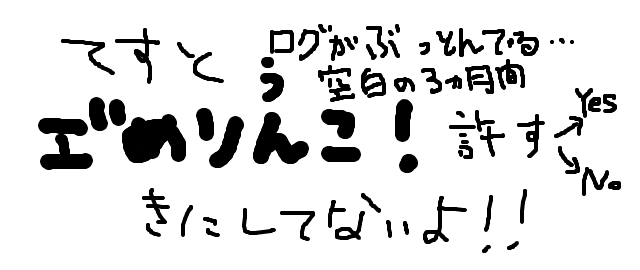 てすと
ログがぶっとんでる…
空白の3ヵ月間
う
ごめりんこ!
許す
Yes
No
きにしてないよ!!